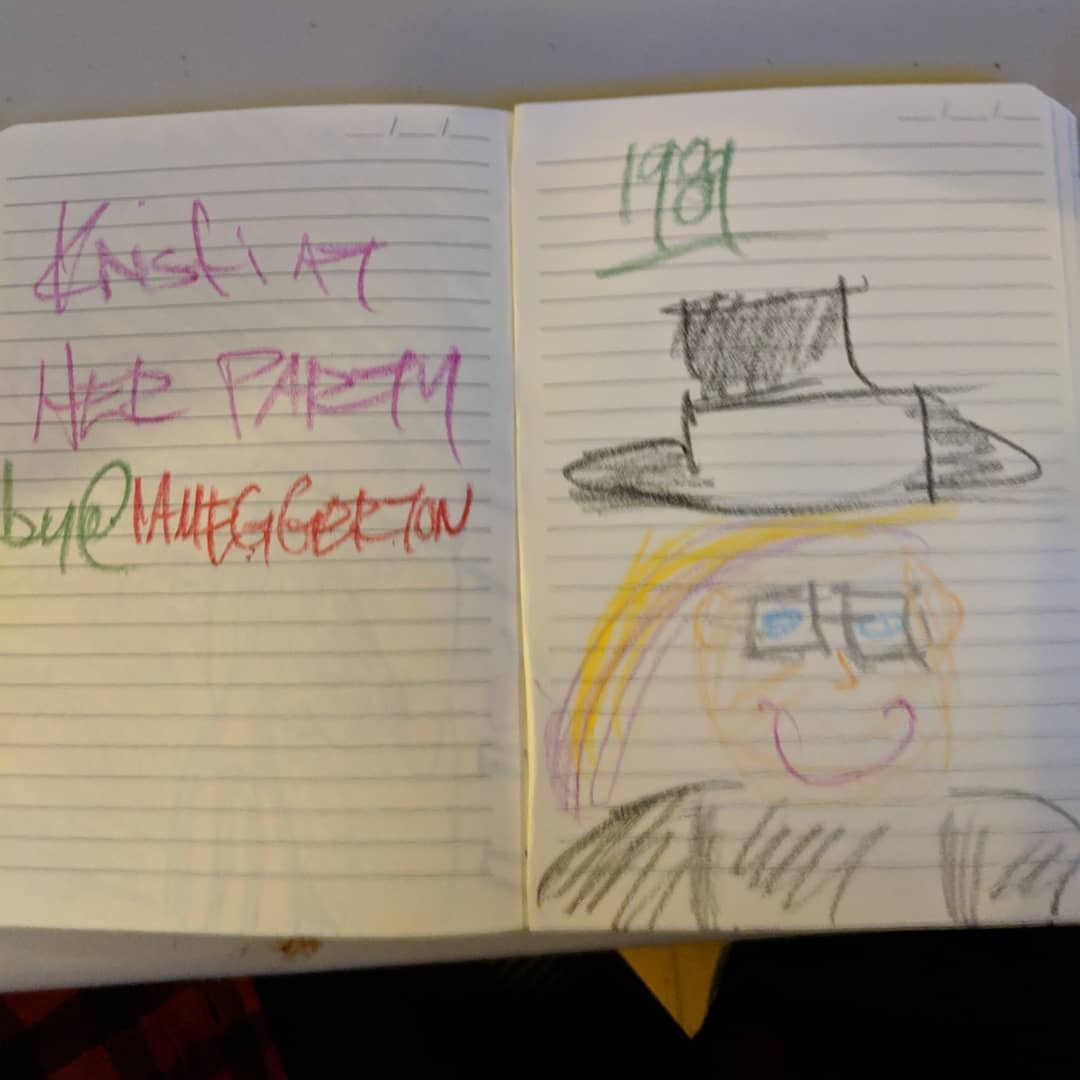 Kristi AT
HER PARTY
by @IAMEGGERTON
1989